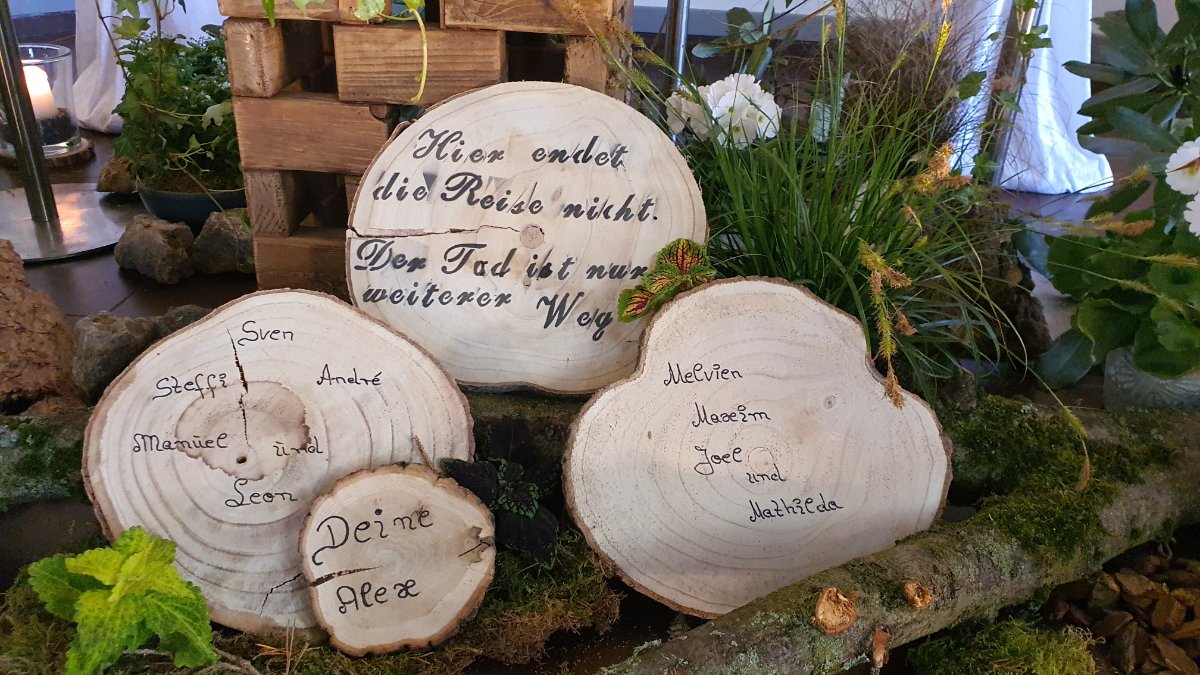 Hier endet
die Reise nicht.
Der Tod ist nur
weiterer Weg
Sven
Steffi André
Manüel ünd
Leon
Deine
Alex
Melvien
Maxim
Joel
und
Mathilda